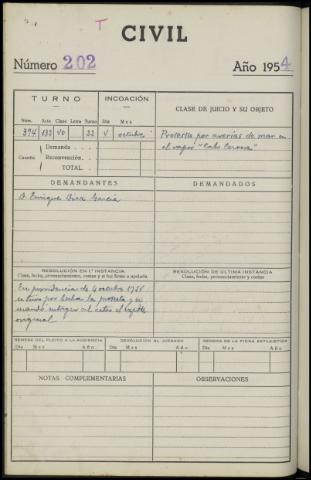 T
CIVIL
Número 202
Año 1954
TURNO
INCOACIÓN
CLASE DE JUICIO Y SU OBJETO
Núm. Acta Clase Letra Turno Día Mes
394 133 40 22 4 octubre
Protesta por averías de mar en
el vapor "Cabo Corona"
Cuantía:
Demanda
Reconvención
TOTAL
DEMANDANTES
DEMANDADOS
D. Enrique Diaz Garcia
RESOLUCIÓN EN 1.ª INSTANCIA
Clase, fecha, pronunciamiento, costas y si fué firme o apelada
RESOLUCIÓN DE ÚLTIMA INSTANCIA
Clase, fecha, pronunciamiento y costas
En providencia de 4 octubre 1954
se tuvo por hecha la protesta y se
mandó entregar al actor el expdte
original
REMESA DEL PLEITO A LA AUDIENCIA
DEVOLUCIÓN AL JUZGADO
REMESA DE LA FICHA ESTADÍSTICA
Día Mes Año
Día Mes Año
Día Mes Año
NOTAS COMPLEMENTARIAS
OBSERVACIONES